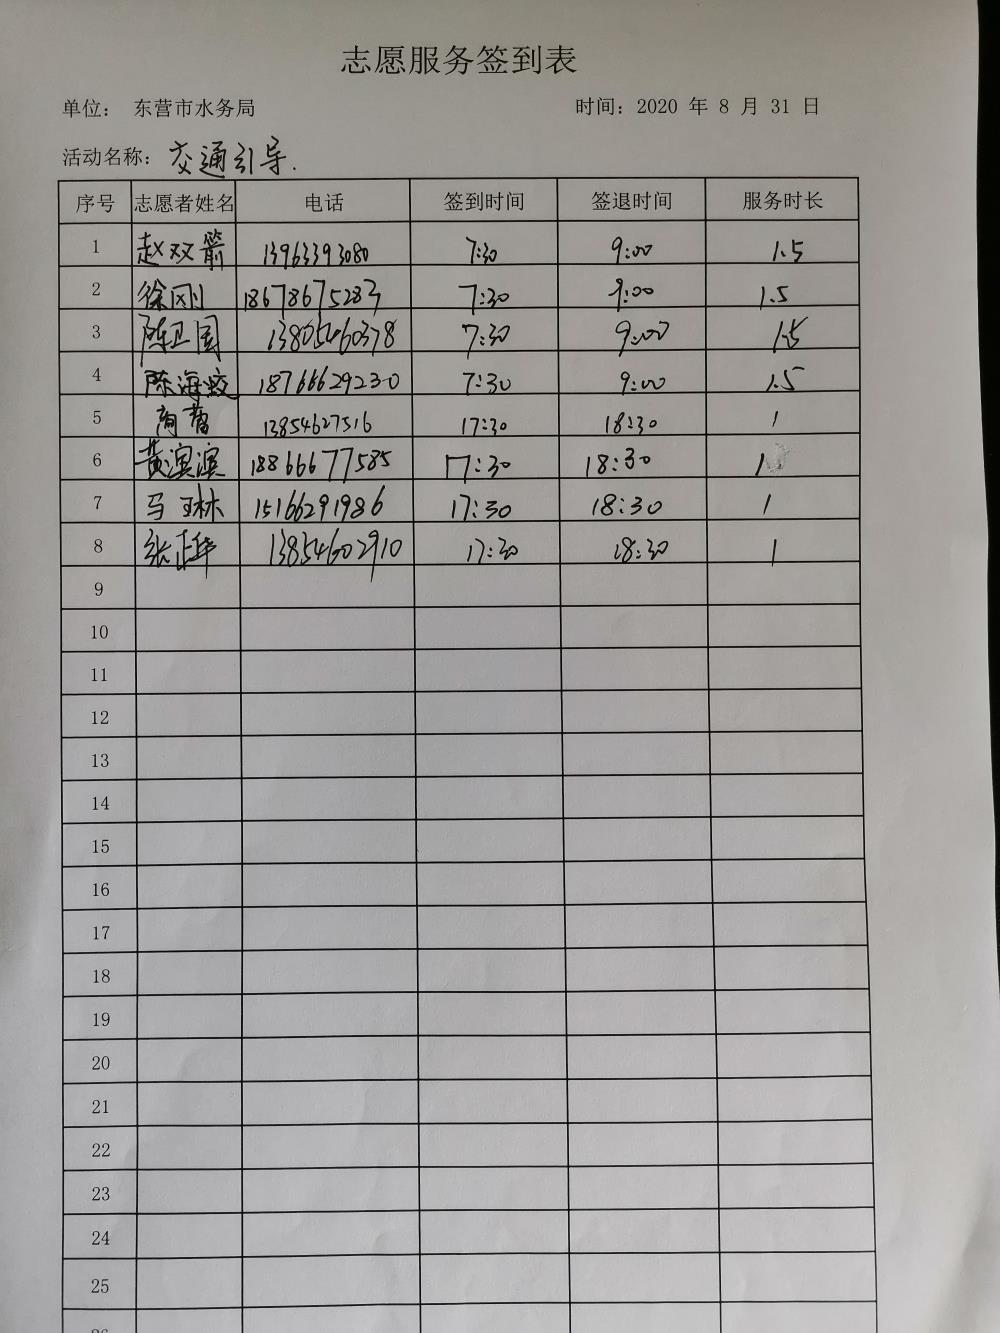 志愿服务签到表
单位： 东营市水务局 时间：2020 年 8 月 31 日
活动名称：交通引导.
序号 志愿者姓名 电话 签到时间 签退时间 服务时长
1 赵双箭 13963393080 7:30 9:00 1.5
2 徐刚 18678675283 7:30 9:00 1.5
3 陈卫国 13805460378 7:30 9:00 1.5
4 陈海蛟 18766629230 7:30 9:00 1.5
5 13854627516 17:30 18:30 1
6 黄滨滨 18866677585 17:30 18:30 1
7 马琳 15166291986 17:30 18:30 1
8 张正华 13854602910 17:30 18:30 1
9
10
11
12
13
14
15
16
17
18
19
20
21
22
23
24
25